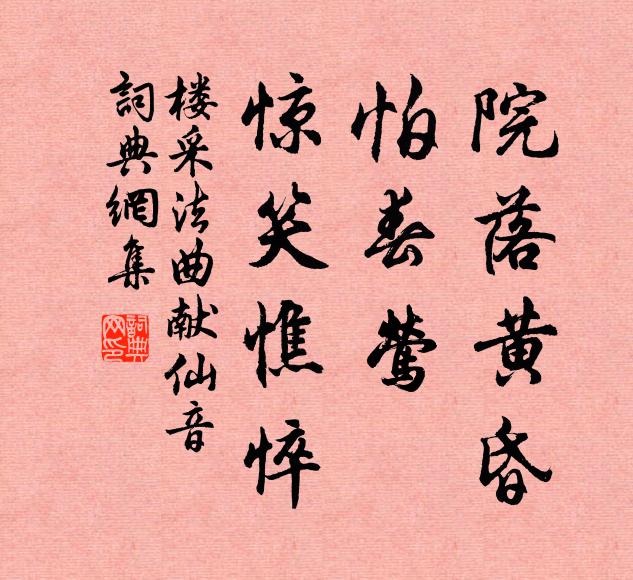 院落黄昏
怕春莺
惊笑憔悴
楼采法曲献仙音
詞典網集
詞典網印